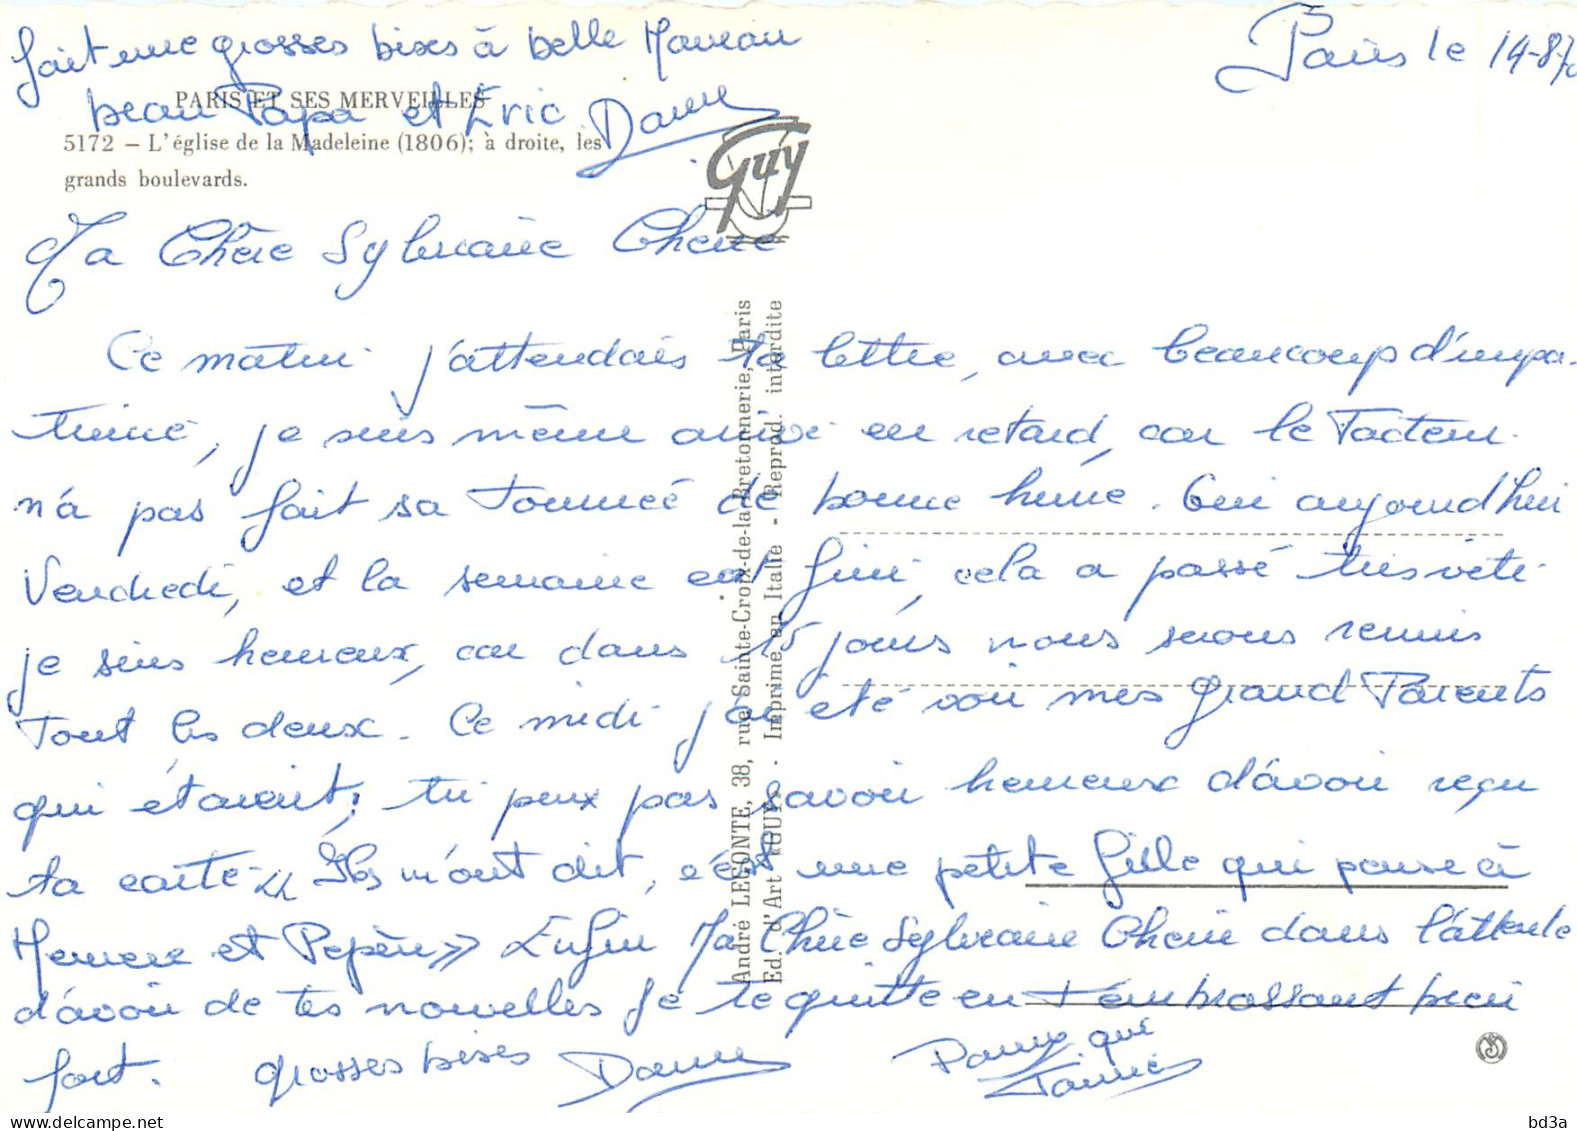 Paris le 14-8-70
fait une grosses bises à belle Maman
beau Papa et Eric Dany
PARIS ET SES MERVEILLES
5172 – L'église de la Madeleine (1806); à droite, les
grands boulevards.
Guy
Ma Chère Sylviane Cherie
Ce matin j'attendais ta lettre, avec beaucoup d'impa-
tience, je suis même arrivé en retard, car le Facteur
n'a pas fait sa tournée de bonne heure. Oui aujourd'hui
Vendredi, et la semaine est fini, cela a passé très vite
je suis heureux, car dans 15 jours nous serons reunis
Tout les deux. Ce midi j'ai été voir mes grand Parents
qui étaient, tu peux pas savoir heureux d'avoir reçu
ta carte. << Ils m'ont dit, c'est une petite fille qui pense à
Memere et Pepère >> Enfin Ma Chère Sylviane Cherie dans l'attente
d'avoir de tes nouvelles je te quitte en t'embrassant bien
fort. grosses bises Dany
qui
André LECONTE, 38, rue Sainte-Croix-de-la-Bretonnerie, Paris
Ed. d'Art «GUY» - Imprimé en Italie - Reprod. interdite
delcampe.net
bd3a